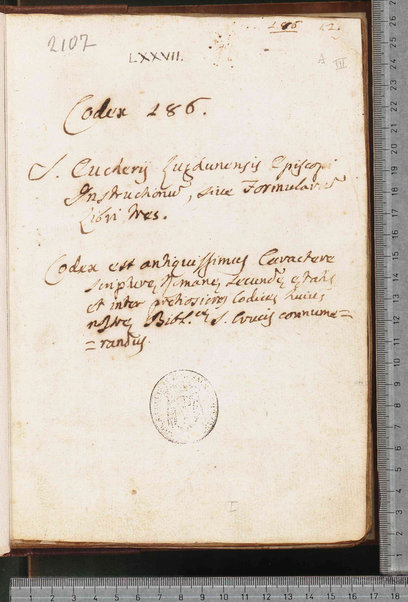 2107
LXXVII.
286
A III
Codex 286.
S. Eucherij Lugdunensis Episcopi
Instructionũ, sive Formularum
Libri tres.
Codex est antiquissimus Caractere
scripturę Romanę, secundę ętatis
et inter pretiosiores Codices huius
nostrę Bibl.cę S. Crucis connume=
=randus.
I